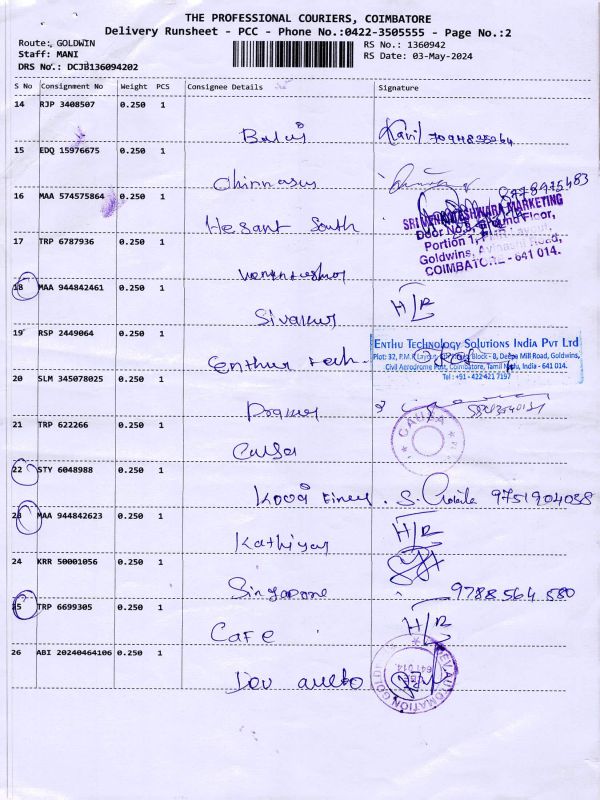 THE PROFESSIONAL COURIERS, COIMBATORE
Delivery Runsheet - PCC - Phone No.:0422-3505555 - Page No.:2
Route: GOLDWIN RS No.: 1360942
Staff: MANI RS Date: 03-May-2024
DRS No.: DCJB136094202
S No Consignment No Weight PCS Consignee Details Signature
14 RJP 3408507 0.250 1
Balaji
15 EDQ 15976675 0.250 1
Chinnasus
16 MAA 574575864 0.250 1
Hesant South
SRI VENKATESHWARA MARKETING
Door No.8, Ground Floor,
Portion 1,
Goldwins, Avinashi Road,
COIMBATORE - 641 014.
17 TRP 6787936 0.250 1
18 MAA 944842461 0.250 1
Sivakus H/R
19 RSP 2449064 0.250 1
Enthus tech.
ENTHU TECHNOLOGY SOLUTIONS INDIA PVT LTD
Plot: 32, P.M.R Layout, Block - 8, Deepa Mill Road, Goldwins,
Civil Aerodrome Post, Coimbatore, Tamil Nadu, India - 641 014.
Tel : +91 - 422 421 7197
20 SLM 345078025 0.250 1
21 TRP 622266 0.250 1
CAUSA
22 STY 6048988 0.250 1
9751904038
23 MAA 944842623 0.250 1
Kathiyar H/R
24 KRR 50001056 0.250 1
Singapone 9788564580
25 TRP 6699305 0.250 1
CAFE H/R
26 ABI 20240464106 0.250 1
Dev aueto
DEV AUTOMATION
641 014.